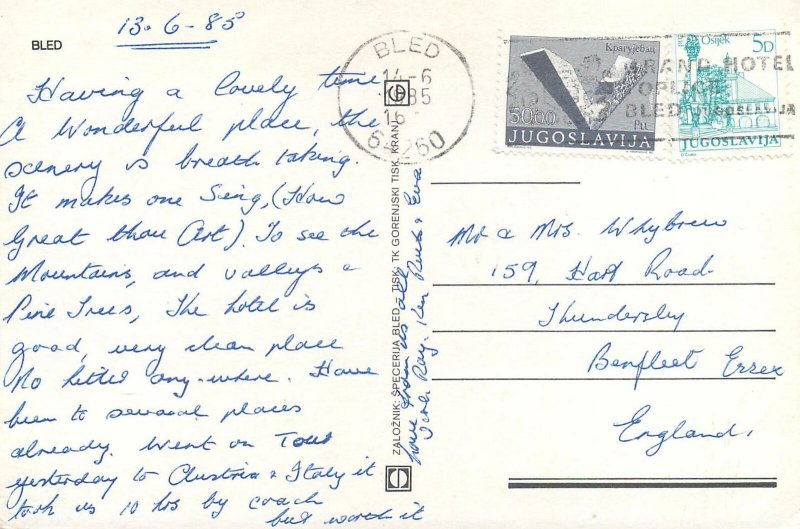 13-6-85
BLED
Having a lovely time
A Wonderful place, the
scenery is breath taking.
It makes one Sing, (How
Great thou Art). To see the
Mountains, and valleys &
Pine Trees, The hotel is
good, very clean place
No litter any-where. Have
been to several places
already. Went on Tour
yesterday to Austria & Italy it
took us 10 hrs by coach
but worth it
love from us all
Ray. Ken Reub & Eva
ZALOŽNIK: ŠPECERIJA BLED – TISK: TK GORENJSKI TISK, KRANJ
BLED
14-6
85
16
64260
GRAND HOTEL
TOPLICE
BLED
Крагујевац
50.00
JUGOSLAVIJA
Osijek
5D
JUGOSLAVIJA
Mr & Mrs. Whybrew
159, Hart Road
Thundersley
Benfleet Essex
England,